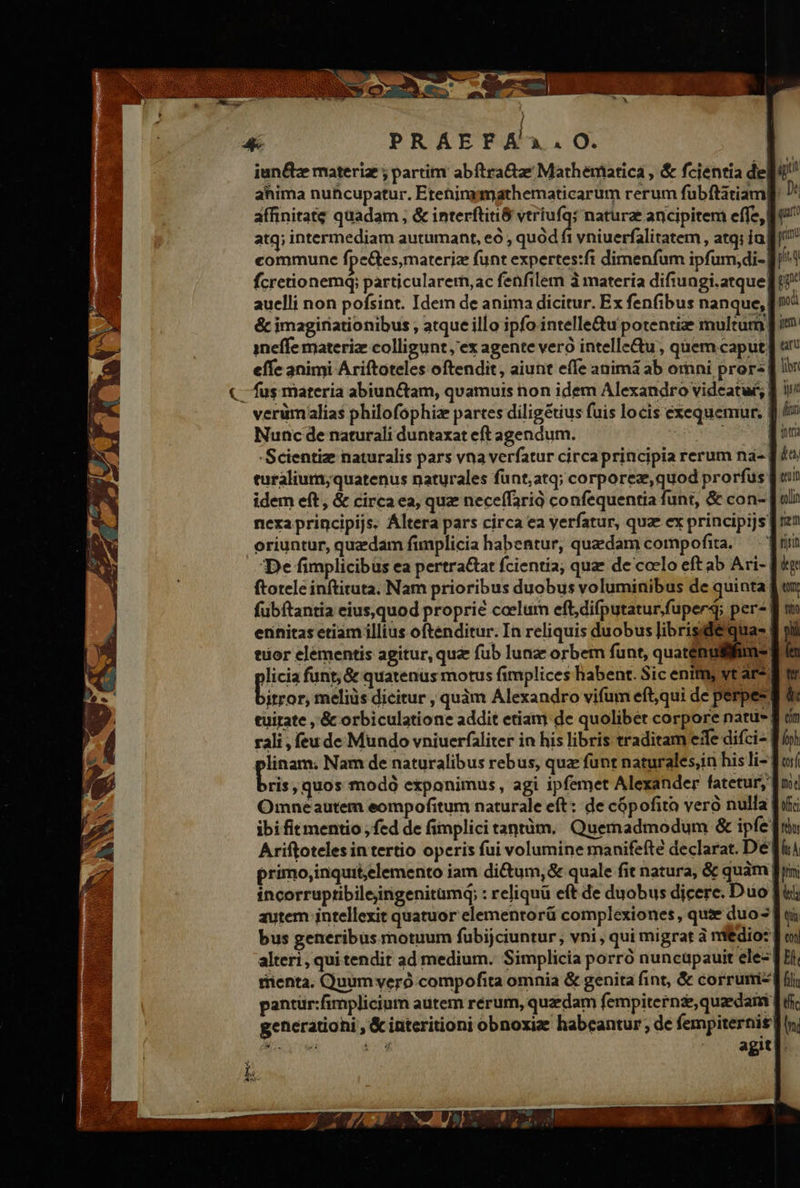 4 PRAEFATIO.
iunctæ materiæ ; partim abſtractæ Mathematica , & ſcientia de
anima nuncupatur. Etenim mathematicarum rerum ſubſtātiam
affinitate quadam , & interſtitiō vtriuſq; naturæ ancipitem eſſe,
atq; intermediam autumant, eò , quòd ſi vniuerſalitatem , atq; in
commune ſpectes,materiæ ſunt expertes:ſi dimenſum ipſum,di-
ſcretionemq; particularem,ac ſenſilem à materia diſiungi.atque
auelli non poſsint. Idem de anima dicitur. Ex ſenſibus nanque,
& imaginationibus , atque illo ipſo intellectu potentiæ multum
ineſſe materiæ colligunt , ex agente verò intellectu , quem caput
eſſe animi Ariſtoteles oſtendit, aiunt eſſe animā ab omni pror-
ſus materia abiunctam, quamuis non idem Alexandro videatur,
verùm alias philoſophiæ partes diligētius ſuis locis exequemur.
Nunc de naturali duntaxat eſt agendum.
Scientiæ naturalis pars vna verſatur circa principia rerum na-
turalium, quatenus naturales ſunt,atq; corporeæ,quod prorſus
idem eſt , & circa ea, quæ neceſſariò conſequentia ſunt, & con-
nexa principijs. Altera pars circa ea verſatur, quæ ex principijs
oriuntur, quædam ſimplicia habentur, quædam compoſita.
De ſimplicibus ea pertractat ſcientia, quæ de cœlo eſt ab Ari-
ſtotele inſtituta. Nam prioribus duobus voluminibus de quinta
ſubſtantia eius,quod propriè cœlum eſt,diſputatur,ſuperq; per-
ennitas etiam illius oſtenditur. In reliquis duobus libris de qua-
tuor elementis agitur, quæ ſub lunæ orbem ſunt, quatenus ſim-
plicia ſunt, & quatenus motus ſimplices habent. Sic enim, vt ar-
bitror, meliùs dicitur , quàm Alexandro viſum eſt,qui de perpe-
tuitate , & orbiculatione addit etiam de quolibet corpore natu-
rali , ſeu de Mundo vniuerſaliter in his libris traditam eſſe diſci-
plinam. Nam de naturalibus rebus, quæ ſunt naturales,in his li-
bris , quos modò exponimus , agi ipſemet Alexander fatetur,
Omne autem compoſitum naturale eſt : de cōpoſito verò nulla
ibi fit mentio , ſed de ſimplici tantùm. Quemadmodum & ipſe
Ariſtoteles in tertio operis ſui volumine manifeſtè declarat. De
primo,inquit,elemento iam dictum, & quale ſit natura, & quàm
incorruptibile,ingenitūmq; : reliquū eſt de duobus dicere. Duo
autem intellexit quatuor elementorū complexiones , quæ duo-
bus generibus motuum ſubijciuntur , vni , qui migrat à medio:
alteri , qui tendit ad medium. Simplicia porrò nuncupauit ele-
menta. Quum verò compoſita omnia & genita ſint, & corrum-
pantur:ſimplicium autem rerum, quædam ſempiternæ,quædam
generationi , & interitioni obnoxiæ habeantur , de ſempiternis
agit